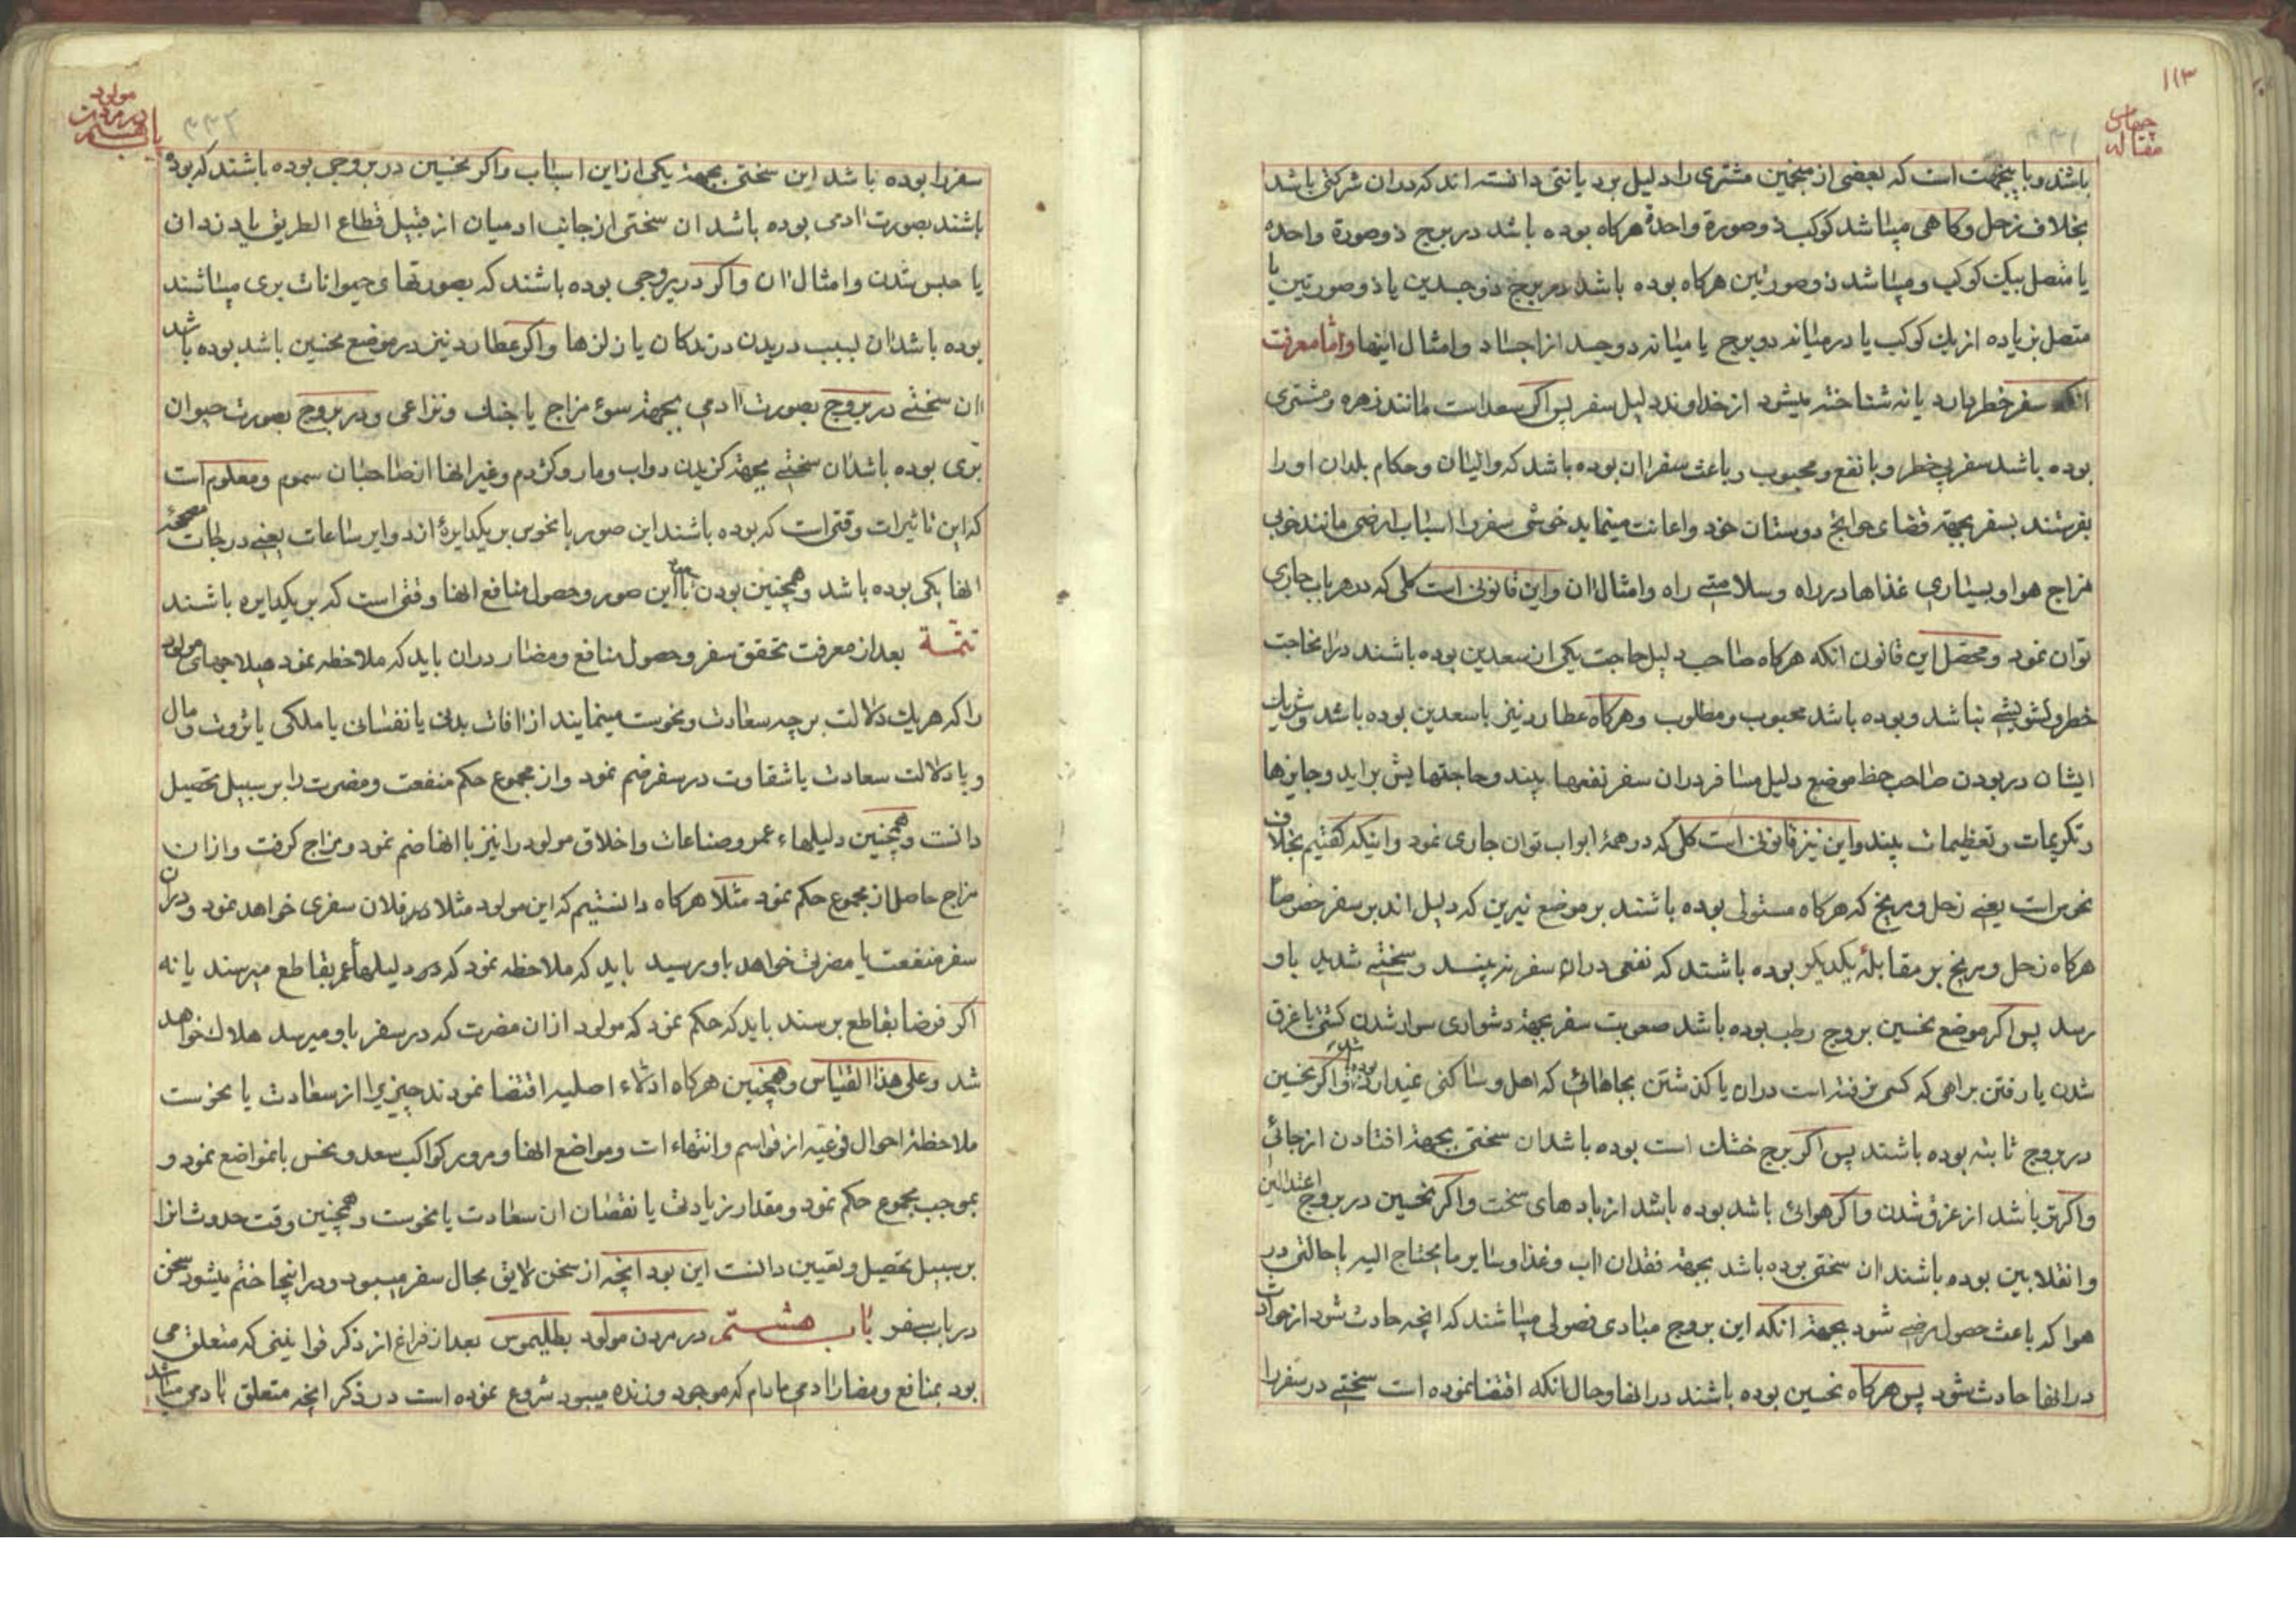 ۱۱۳
مقاله چهارم
۳۳۱
باشند و با بجهت است که بعضی از منجمین مشتری را دلیل بر دیانتی دانسته اند که در ان شرکتی باشد
بخلاف زحل و کاهی میباشد کوکب ذو صورة واحدة هرکاه بوده باشد در برج ذو صورة واحده
یا متصل بیک کوکب و میباشد ذو صورتین هرکاه بوده باشد در برج ذو جسدین یا ذو صورتین یا
متصل بزیاده از یك کوکب یا در میانه دو برج یا میانه دو جسد از اجساد و امثال اینها و اما معرفت
انکه سفر خطر دارد یا نه شناخته میشود از خداوند دلیل سفر پس اکر سعد است مانند زهره و مشتری
بوده باشد سفر بی خطر و با نفع و محبوب و باعث سفر ان بوده باشد که والیان و حکام بلدان او را
بفرستند بسفر بجهة قضای حوایج دوستان خود و اعانت مینماید خوشی سفر را اسباب ارضی مانند خوبی
مزاج هوا و بسیاری غذاها در راه و سلامتی راه و امثال ان و این قانونی است کلی که در هر باب جاری
توان نمود و محصل این قانون انکه هرکاه صاحب دلیل حاجت یکی از سعدین بوده باشند در انحاجت
خطر و تشویشی نباشد و بوده باشد محبوب و مطلوب و هرکاه عطارد نیز با سعدین بوده باشد و شریك
ایشان در بودن صاحب حظ موضع دلیل مسافر در ان سفر نفعها بیند و حاجتهایش براید و جایزها
و تکریمات و تعظیمات بیند و این نیز قانونی است کلی که در همهٔ ابواب توان جاری نمود و اینکه کفتیم بخلاف
نحوس است یعنی زحل و مریخ که هرکاه مستولی بوده باشند بر موضع نیرین که دلیل اند بر سفر خصوصا
هرکاه زحل و مریخ بر مقابلهٔ یکدیکر بوده باشند که نفعی در ان سفر نه بیند و سختی شدید باو
رسد پس اکر موضع نحسین بروج رطب بوده باشد صعوبت سفر بجهة دشواری سوار شدن کشتی یا غرق
شدن یا رفتن براهی که کسی نرفته است در ان یا کذشتن بجاهائی که اهل و ساکنی نمیدارد بوده باشد و اکر نحسین
در بروج ثابته بوده باشند پس اکر برج خشك است بوده باشد ان سختی بجهة افتادن از جائی
و اکر تر باشد از غرق شدن و اکر هوائی باشد بوده باشد از بادهای سخت و اکر نحسین در بروج اعتدالین
و انقلابین بوده باشند ان سختی بوده باشد بجهة فقدان اب و غذا و سایر ما یحتاج الیه یا حالتی در
هوا که باعث حصول مرضی شود بجهة انکه این بروج مبادی فصولی میباشند که انچه حادث شود از حوادث
در انها حادث شود پس هرکاه نحسین بوده باشند در انها و حال انکه اقتضا نموده است سختی در سفر را
باب هشتم
در مردن
مولود
۳۳۲
سفر را بوده باشد این سختی بجهة یکی از این اسباب و اکر نحسین در بروجی بوده باشند که بوده
باشند بصورت ادمی بوده باشد ان سختی از جانب ادمیان از قبیل قطاع الطریق یا دزدان
یا حبس شدن و امثال ان و اکر در بروجی بوده باشند که بصورتهای حیوانات بری میباشند
بوده باشد ان بسبب دریدن درندکان یا زلزلها و اکر عطارد نیز در موضع نحسین باشد بوده باشد
ان سختی در بروج بصورت ادمی بجهة سوء مزاج یا جنك و نزاعی و در بروج بصورت حیوان
بری بوده باشد ان سختی بجهة کزیدن دواب و مار و کژدم و غیر انها از صاحبان سموم و معلوم است
که این تاثیرات وقتی است که بوده باشند این صور با نحوس بر یکدایرهٔ از دوایر ساعات یعنی درجات
انها یکی بوده باشد و همچنین بودن با این صور و حصول منافع انها وقتی است که بر یکدایره باشند
تتمة بعد از معرفت تحقق سفر و حصول منافع و مضار در ان باید که ملاحظه نمود هیلاجهای مولود
را که هر یك دلالت بر چه سعادت و نحوست مینمایند از افات بدنی یا نفسانی یا ملکی یا ثروت و مال
و با دلالت سعادت یا شقاوت در سفر ضم نمود و از مجموع حکم منفعت و مضرت را بر سبیل تحصیل
دانست و همچنین دلیلهاء عمر و صناعات و اخلاق مولود را نیز با انها ضم نمود و مزاج کرفت و از ان
مزاج حاصل از مجموع حکم نمود مثلا هرکاه دانستیم که این مولود مثلا در فلان سفری خواهد نمود و در ان
سفر منفعت یا مضرتی خواهد باو رسید باید که ملاحظه نمود که در دلیلهاء عمر بقاطع میرسند یا نه
اکر فرضا بقاطع برسند باید که حکم نمود که مولود از ان مضرت که در سفر باو میرسد هلاك خواهد
شد و علی هذا القیاس و همچنین هرکاه ادلاء اصلیه اقتضا نمودند چیزیرا از سعادت یا نحوست
ملاحظهٔ احوال فرعیه از قواسم و انتهاءات و مواضع انها و مرور کواکب سعد و نحس بانمواضع نمود و
بموجب مجموع حکم نمود و مقدار زیادتی یا نقصان ان سعادت یا نحوست و همچنین وقت حدوث انرا
بر سبیل تحصیل و تعیین دانست این بود انچه از سخن لایق بحال سفر میبود و در اینجا ختم میشود سخن
در باب سفر باب هشتم در مردن مولود بطلیموس بعد از فراغ از ذکر قوانینی که متعلق می
بود بمنافع و مضار ادمی مادام که موجود و زنده میبود شروع نموده است در ذکر انچه متعلق بادمی میباشد